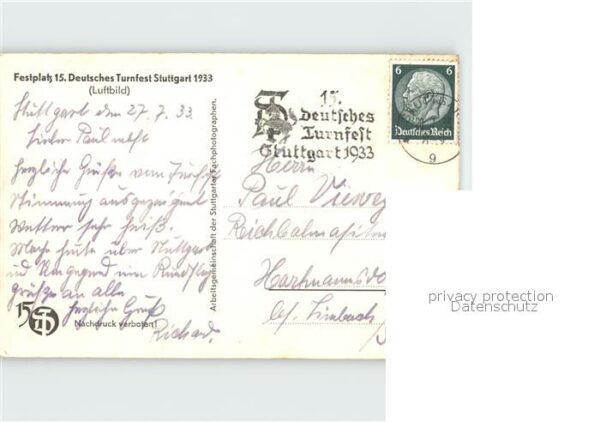 Festplatz 15. Deutsches Turnfest Stuttgart 1933
(Luftbild)
Stuttgart den 27.7.33.
Herzliche Grüße vom
Stimmung ausgezeichnet
Wetter sehr heiß.
Mache heute über Stuttgart
und Umgegend ein Rundflug
Grüße an alle
herzliche Gruß
Richard.
15
Nachdruck verboten!
Arbeitsgemeinschaft der Stuttgarter Fachphotographen.
15.
Deutsches
Turnfest
Stuttgart 1933
6 6
Deutsches Reich
9
Herrn
Paul Vieweg
Hartmannsdo
bei Limbach
privacy protection
Datenschutz